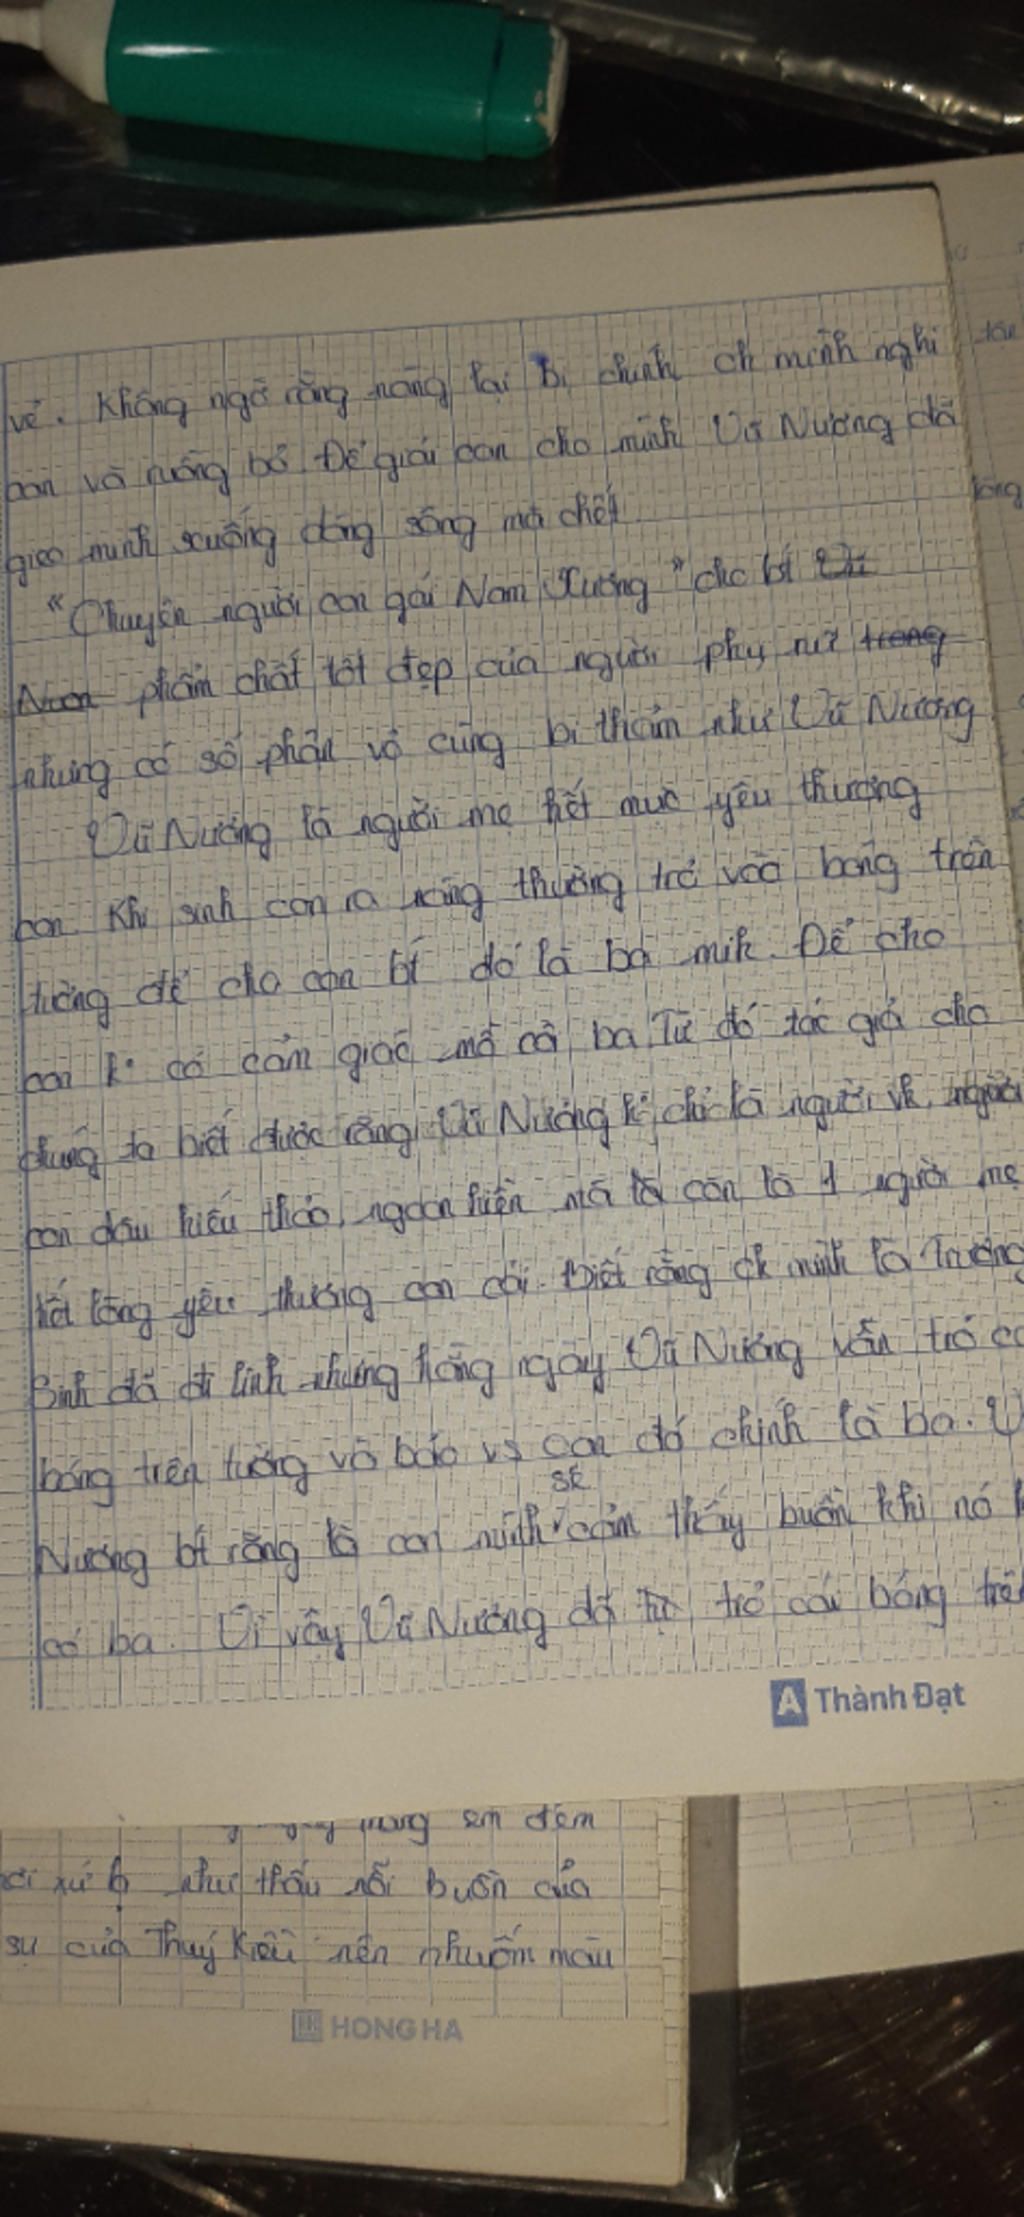 về. Không ngờ rằng nàng lại bị chính ck mình nghi
oan và ruồng bỏ. Để giải oan cho mình Vũ Nương đã
gieo mình xuống dòng sông mà chết
"Chuyện người con gái Nam Xương" cho bt
phẩm chất tốt đẹp của người phụ nữ trong
nhưng có số phận vô cùng bi thảm như Vũ Nương
Vũ Nương là người mẹ hết mực yêu thương
con. Khi sinh con ra nàng thường trỏ vào bóng trên
tường để cho con bt đó là ba mik. Để cho
con k có cảm giác mồ côi ba. Từ đó tác giả cho
chúng ta biết được rằng Vũ Nương k chỉ là người vk, người
con dâu hiếu thảo, ngoan hiền mà là còn là 1 người mẹ
hết lòng yêu thương con cái. Biết rằng ck mình là Trương
Sinh đã đi lính nhưng hằng ngày Vũ Nương vẫn trỏ
bóng trên tường và bảo vs con đó chính là ba.
Nương bt rằng là con mình sẽ cảm thấy buồn khi nó
có ba. Vì vậy Vũ Nương đã trỏ cái bóng trên
Thành Đạt
êm đềm
như thấu nỗi buồn của
sự của Thuý Kiều nên nhuốm màu
HONG HA